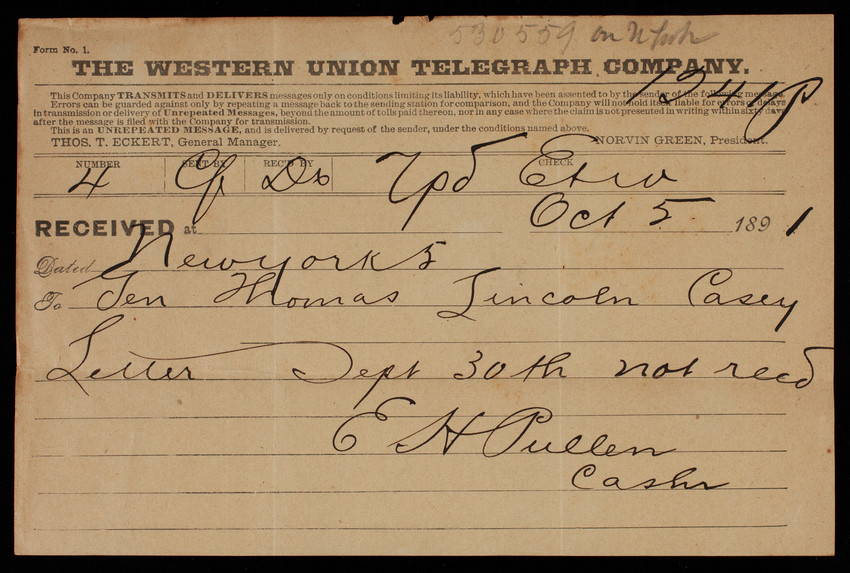 530559 on N York
Form No. 1.
THE WESTERN UNION TELEGRAPH COMPANY.
This Company TRANSMITS and DELIVERS messages only on conditions limiting its liability, which have been assented to by the sender of the following message.
Errors can be guarded against only by repeating a message back to the sending station for comparison, and the Company will not hold itself liable for errors or delays
in transmission or delivery of Unrepeated Messages, beyond the amount of tolls paid thereon, nor in any case where the claim is not presented in writing within sixty days
after the message is filed with the Company for transmission.
This is an UNREPEATED MESSAGE, and is delivered by request of the sender, under the conditions named above.
THOS. T. ECKERT, General Manager. NORVIN GREEN, President.
NUMBER SENT BY REC'D BY CHECK
4
Oct 5 1891
RECEIVED at
Dated New York 5
To Gen Thomas Lincoln Casey
Letter Sept 30th not recd
E H Pullen
Cashr